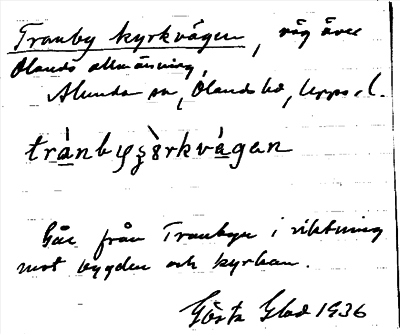 Tranby kyrkvägen, väg över
Ölands allmänning,
Alunda sn, Ølands hd, Upps. l.
trànbyʂørkvàgan
Går från Tranbyn i riktning
mot bygden och kyrkan.
Gösta Glad 1936